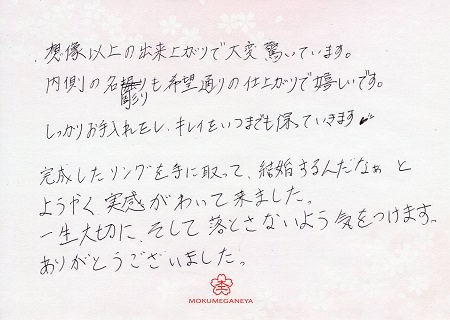 想像以上の出来上がりで大変驚いています。
内側の名彫りも希望通りの仕上がりで嬉しいです。
しっかりお手入れをし、キレイをいつまでも保っていきます
完成したリングを手に取って、結婚するんだなぁ と
ようやく実感がわいて来ました。
一生大切に、そして落とさないよう気をつけます。
ありがとうございました。
MOKUMEGANEYA